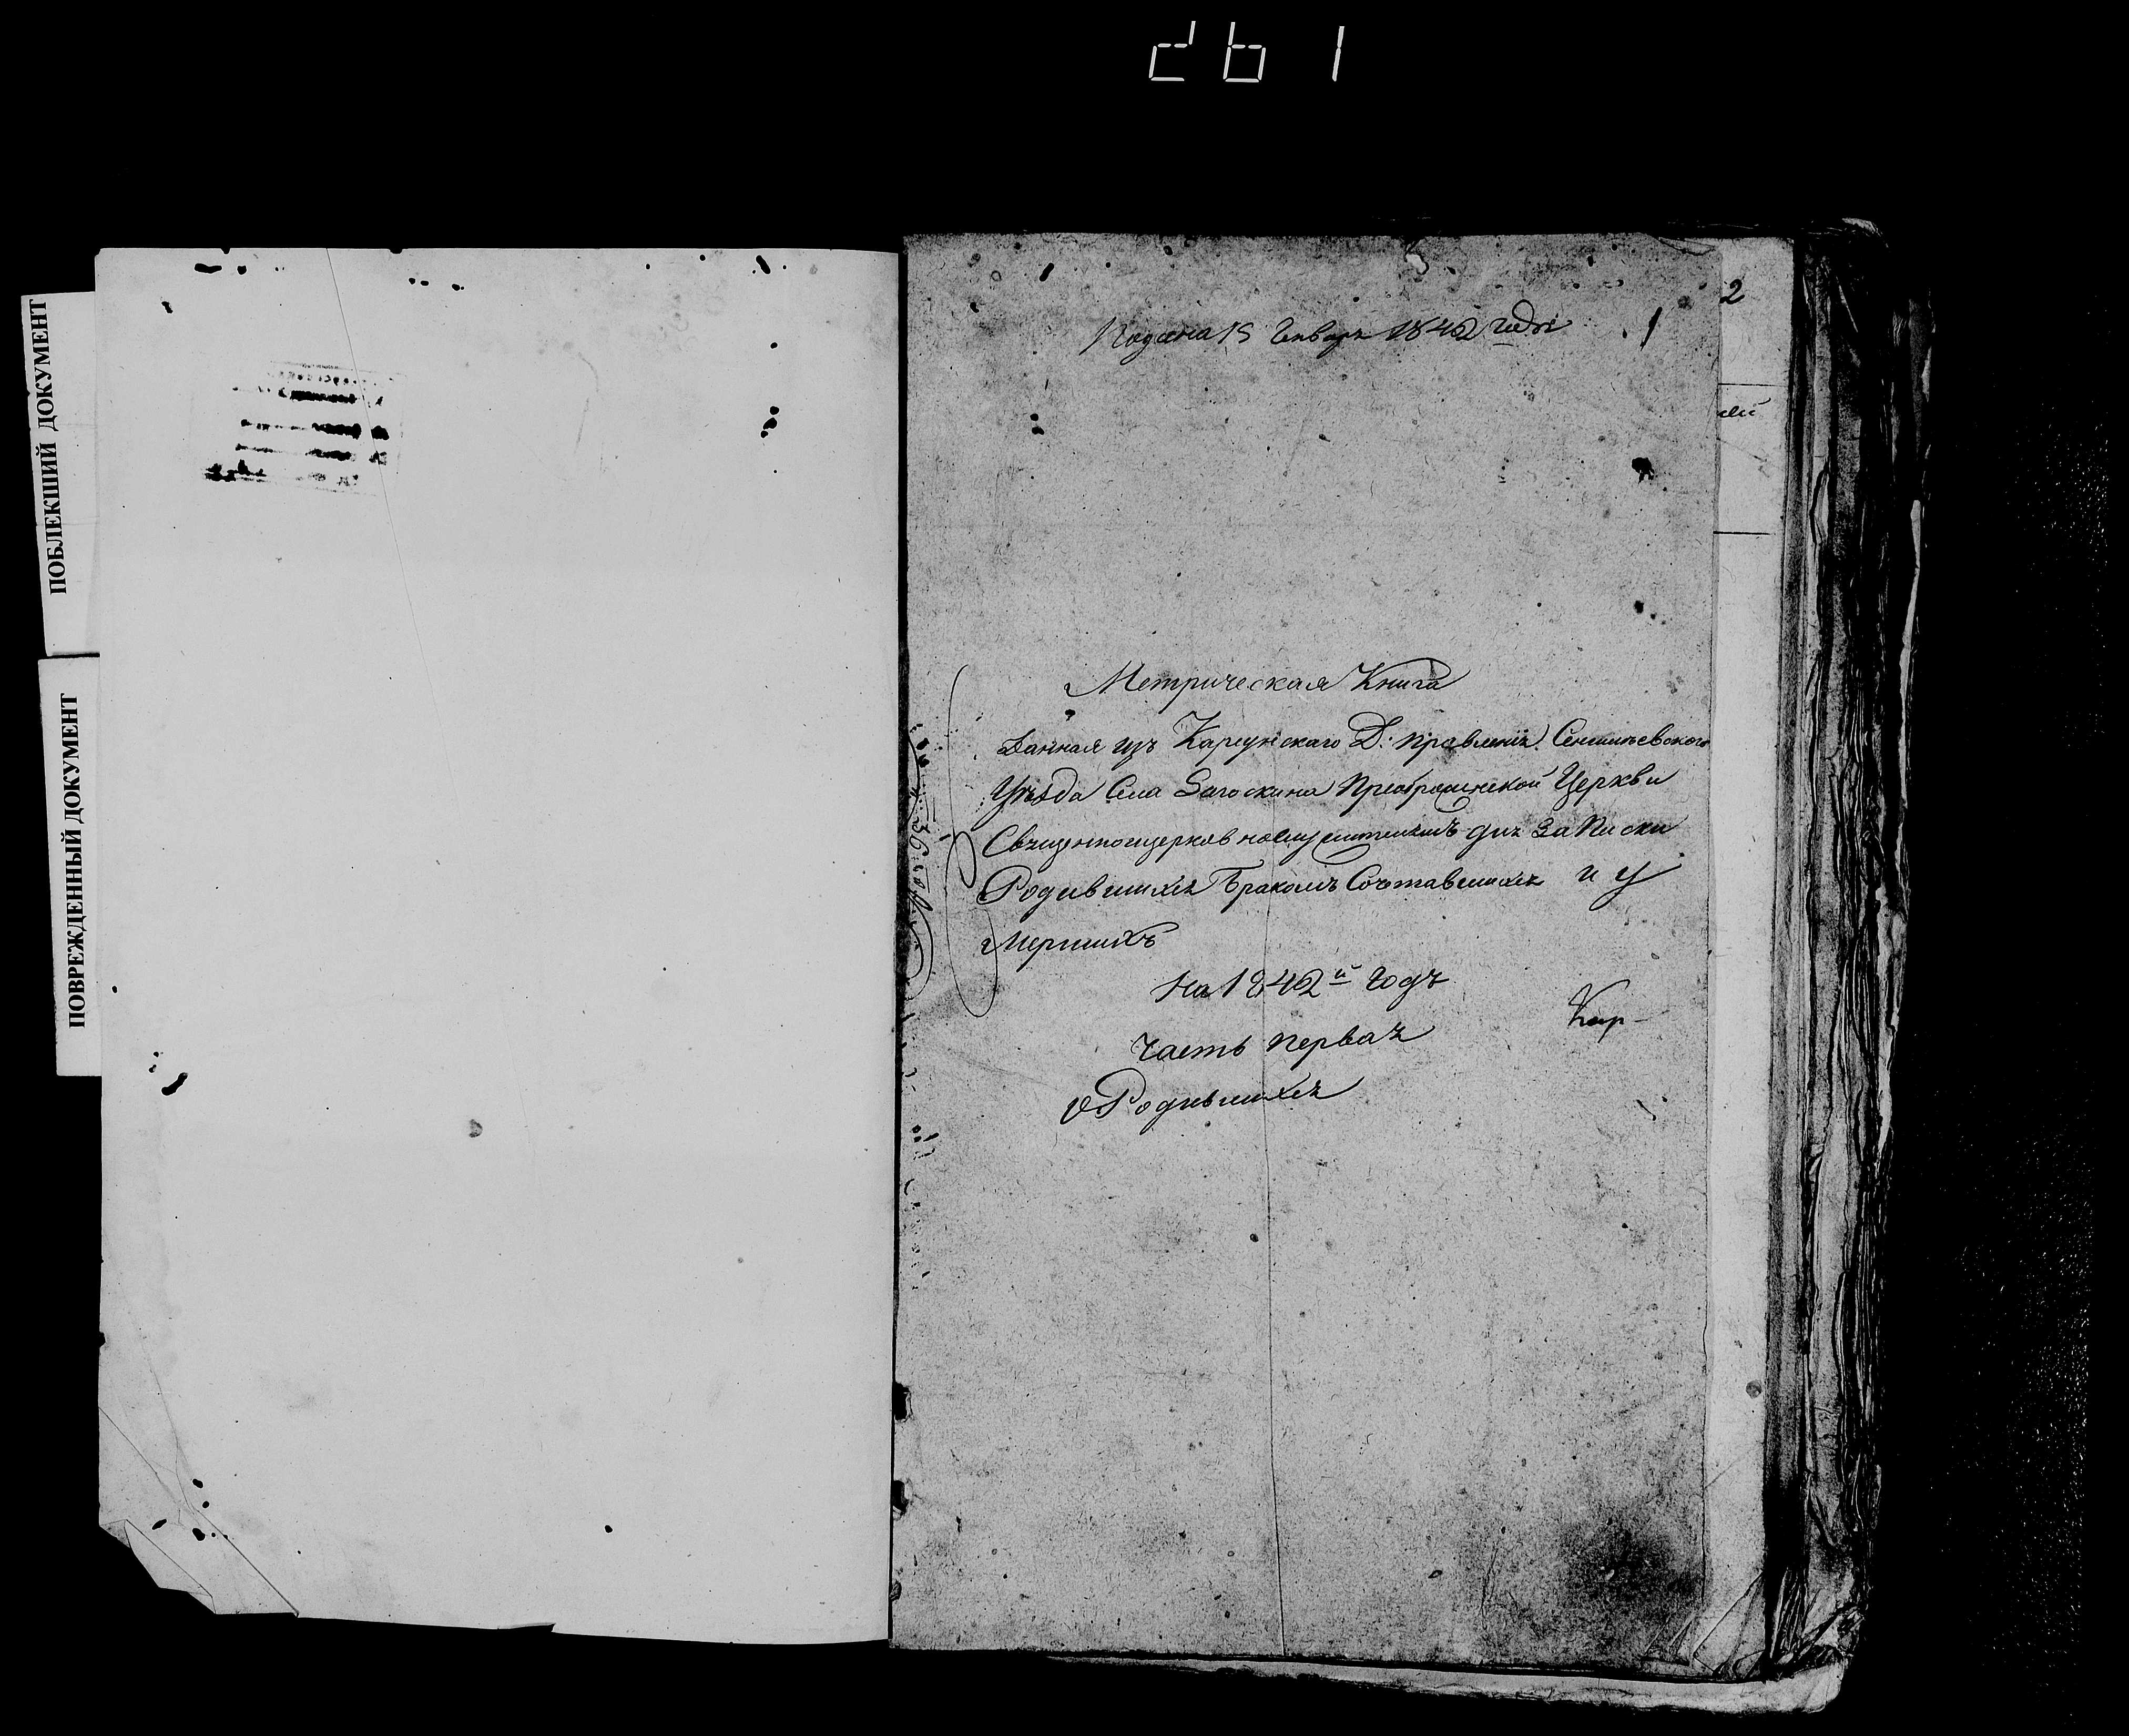 ПОБЛЕКШИЙ ДОКУМЕНТ
ПОВРЕЖДЕННЫЙ ДОКУМЕНТ
2
Подана 15 Генваря 1842 года
1
Метрическая Книга
Данная изъ Карсунскаго Д: правленія Сенгилеевскаго
Уѣзда Села Загоскина Преображенской Церкви
Священноцерковнослужителямъ для Записки
Родившихся Бракомъ Сочтавшихся и У
мершихъ
на 1842й Годъ
Кар-
Часть первая
О Родившихся